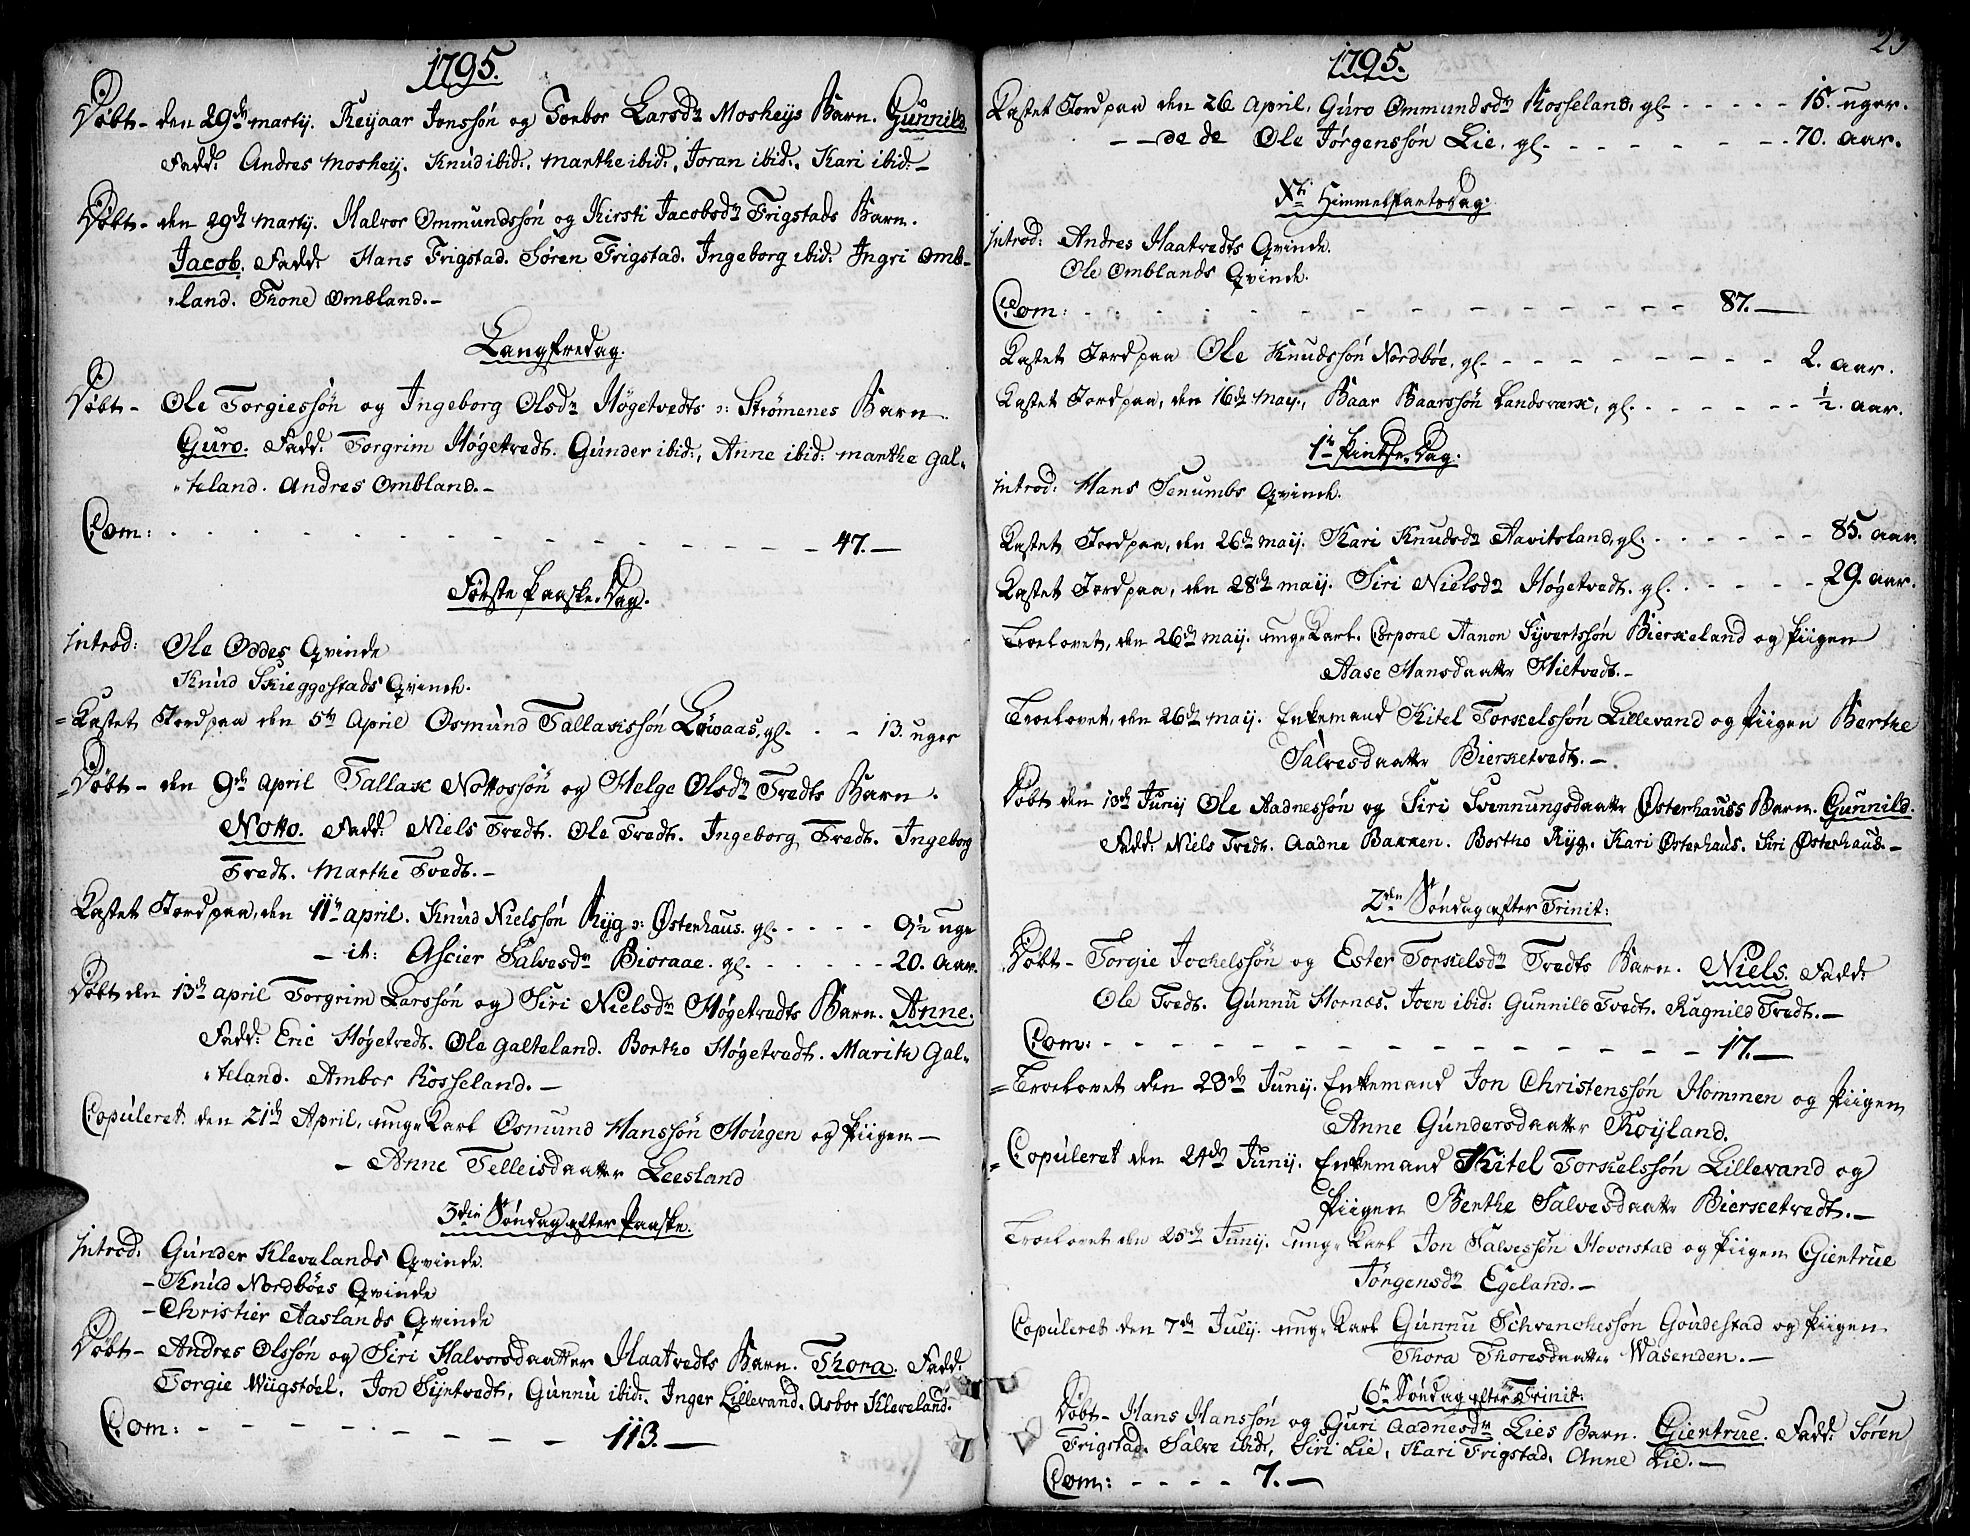 1795.
Døbt - den 29de martij. Reijaar Jonssøn og Torbor Larsdr Mosheijs Barn. Gunnild
Fadd: Andres Mosheij. Knud ibid:, marthe ibid:, Joran ibid:, Kari ibid: -
Døbt - den 29de martij. Halvor Ommundssøn og Kirsti Jacobsdr Frigstads Barn.
Jacob. Fadd: Hans Frigstad. Søren Frigstad. Ingeborg ibid: Ingri Omb-
"land. Thone Ombland. -
Langfredag.
Døbt - Ole Torgiessøn og Ingeborg Olsdr Høgetvedts ɔ: Strømenes Barn
Guro. Fadd: Torgrim Høgetvedt. Gunder ibid:, Anne ibid: marthe Gal-
"teland. Andres Ombland. -
Com: - - - - 47. -
Første Paaske-Dag.
Introd: Ole Oddes Qvinde
Knud Skieggestads Qvinde.
= Kastet Jord paa den 5te April Osmund Tallaxissøn Løvaas, gl. - - 13. uger
= Døbt - den 9de April Tallax Nottossøn og Helge Olsdr Tvedts Barn.
Notto. Fadd: Niels Tvedt. Ole Tvedt. Ingeborg Tvedt. Ingeborg
Tvedt. Marthe Tvedt. -
Kastet Jord paa, den 11te april. Knud Nielssøn Ryg ɔ: Østerhaus. gl. - - - - 9½ uge
- it: Ascier Salvesdr Bioraae. gl. - - - - 20. Aar.
Døbt den 13de april Torgrim Larssøn og Siri Nielsdr Høgetvedts Barn. Anne.
Fadd: Eric Høgetvedt. Ole Galteland. Berthe Høgetvedt. Marithe Gal-
"teland. Ambor Rosseland. -
Copuleret den 21de April, unge Karl Osmund Hanssøn Hougen og Piigen -
- Anne Telleisdaatter Leesland
3die Søndag efter Paaske.
Introd: Gunder Klevelands Qvinde.
- Knud Nordbøes Qvinde
- Christier Aaslands Qvinde
Døbt - Andres Olssøn og Siri Halvorsdaatter Haatvedts Barn. Thora. Fadd:
Torgie Wiigstøel, Jon Sijntvedt, Gunnu ibid:, Inger Lillevand, Asbor Kleveland.
Com: - - - - 113. -
1795.
Kastet Jord paa den 26 April, Guro Ommundsdr Rosseland, gl. - - - - 15. uger.
- - de de Ole Jørgenssøn Lie, gl. - - - - 70. aar.
Xti Himmelfartsdag.
Introd: Andres Haatvedts Qvinde.
Ole Omblands Qvinde.
Com: - - - - 87. -
Kastet Jord paa Ole Knudssøn Nordbøe, gl. - - - - 2. aar.
Kastet Jord paa, den 16de maij, Baar Baarssøn Landsværk, gl. - - - - ½. aar.
1te Pintse-Dag.
Introd: Hans Senumbs Qvinde.
Kastet Jord paa, den 26de maij. Kari Knudsdr Aavitsland, gl. - - - - 85. aar.
Kastet Jord paa, den 28de maij. Siri Nielsdr Høgetvedt. gl. - - - - 29. aar.
Troelovet, den 26de maij. unge Karl. Corporal Aanon Syvertssøn Bierkeland og Piigen
Aase Hansdaatter Hietvedt. -
Troelovet, den 26de maij. Enkemand Kitel Torkelssøn Lillevand og Piigen Berthe
Salvesdaatter Bierketvedt. -
Døbt den 13de Junij Ole Aadnessøn og Siri Svennungsdaatter Østerhauss Barn. Gunnild.
Fadd: Niels Tvedt. Aadne Bakken. Berthe Ryg. Kari Østerhaus. Siri Østerhaus. -
2den Søndag efter Trinit:
Døbt - Torgie Jockelssøn og Ester Torkelsdr Tvedts Barn. Niels. Fadd:
Ole Tvedt. Gunnu Hornæs. Joen ibid: Gunnild Tvedt. Ragnild Tvedt. -
Com: - - - - 17. -
= Troelovet den 23de Junij. Enkemand Jon Christenssøn Hommen og Piigen
Anne Gundersdaatter Røyland.
= Copuleret den 24de Junij. Enkemand Kitel Torkelssøn Lillevand og
Piigen Berthe Salvesdaatter Bierketvedt. -
Troelovet den 25de Junij. unge Karl Jon Salvessøn Hoverstad og Piigen Giertrue
Jørgensdr Egeland. -
Copuleret den 7de Julij unge Karl Gunnu Schvenchessøn Goudestad og Piigen
Thora Thoresdaatter Wasenden. -
6te Søndag efter Trinit:
Døbt - Hans Hanssøn og Guri Aadnesdr Lies Barn. Giertrue. Fadd: Søren
Frigstad. Salve ibid:, Siri Lie, Kari Frigstad. Anne Lie. -
Com: - - - - 7. -